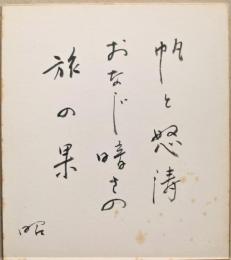 帆と怒涛
おなじ暗さの
旅の果
昭